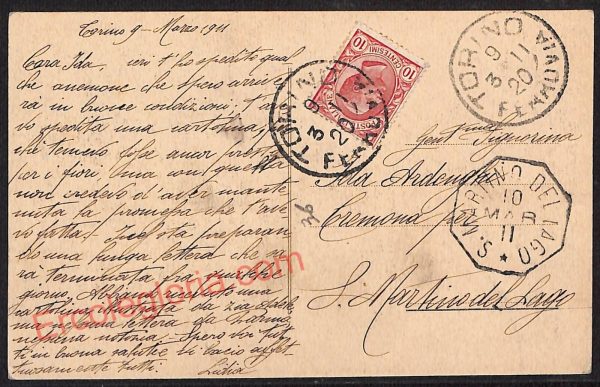 Torino 9 - Marzo 1911
Cara Ida ieri t'ho spedito qual
che anemone che spero arrive
rà in buone condizioni. T'a
vo spedita una cartolina,
che temevo fosse
per i fiori. Ma con questa
non credevo d'aver mante
nuta la promessa che t'ave
vo fatta. preparan
do una lunga lettera che
rà terminata fra qualche
giorno. Abbiamo ricevuto una
cartolina da zia
una lettera da Parma
nessuna notizia. Spero voi tut
ti in buona salute vi bacio affet
tuosamente tutti. Lidia
10
CENTESIMI
10
POSTE
TORINO
9 3 11
20
FERROVIA
TORINO
9 3 11
20
FERROVIA
Gent. Signorina
Ida
Cremona per
S. Martino del Lago
S. MARTINO DEL LAGO
10
MAR
11
36
Ercolegloria.com